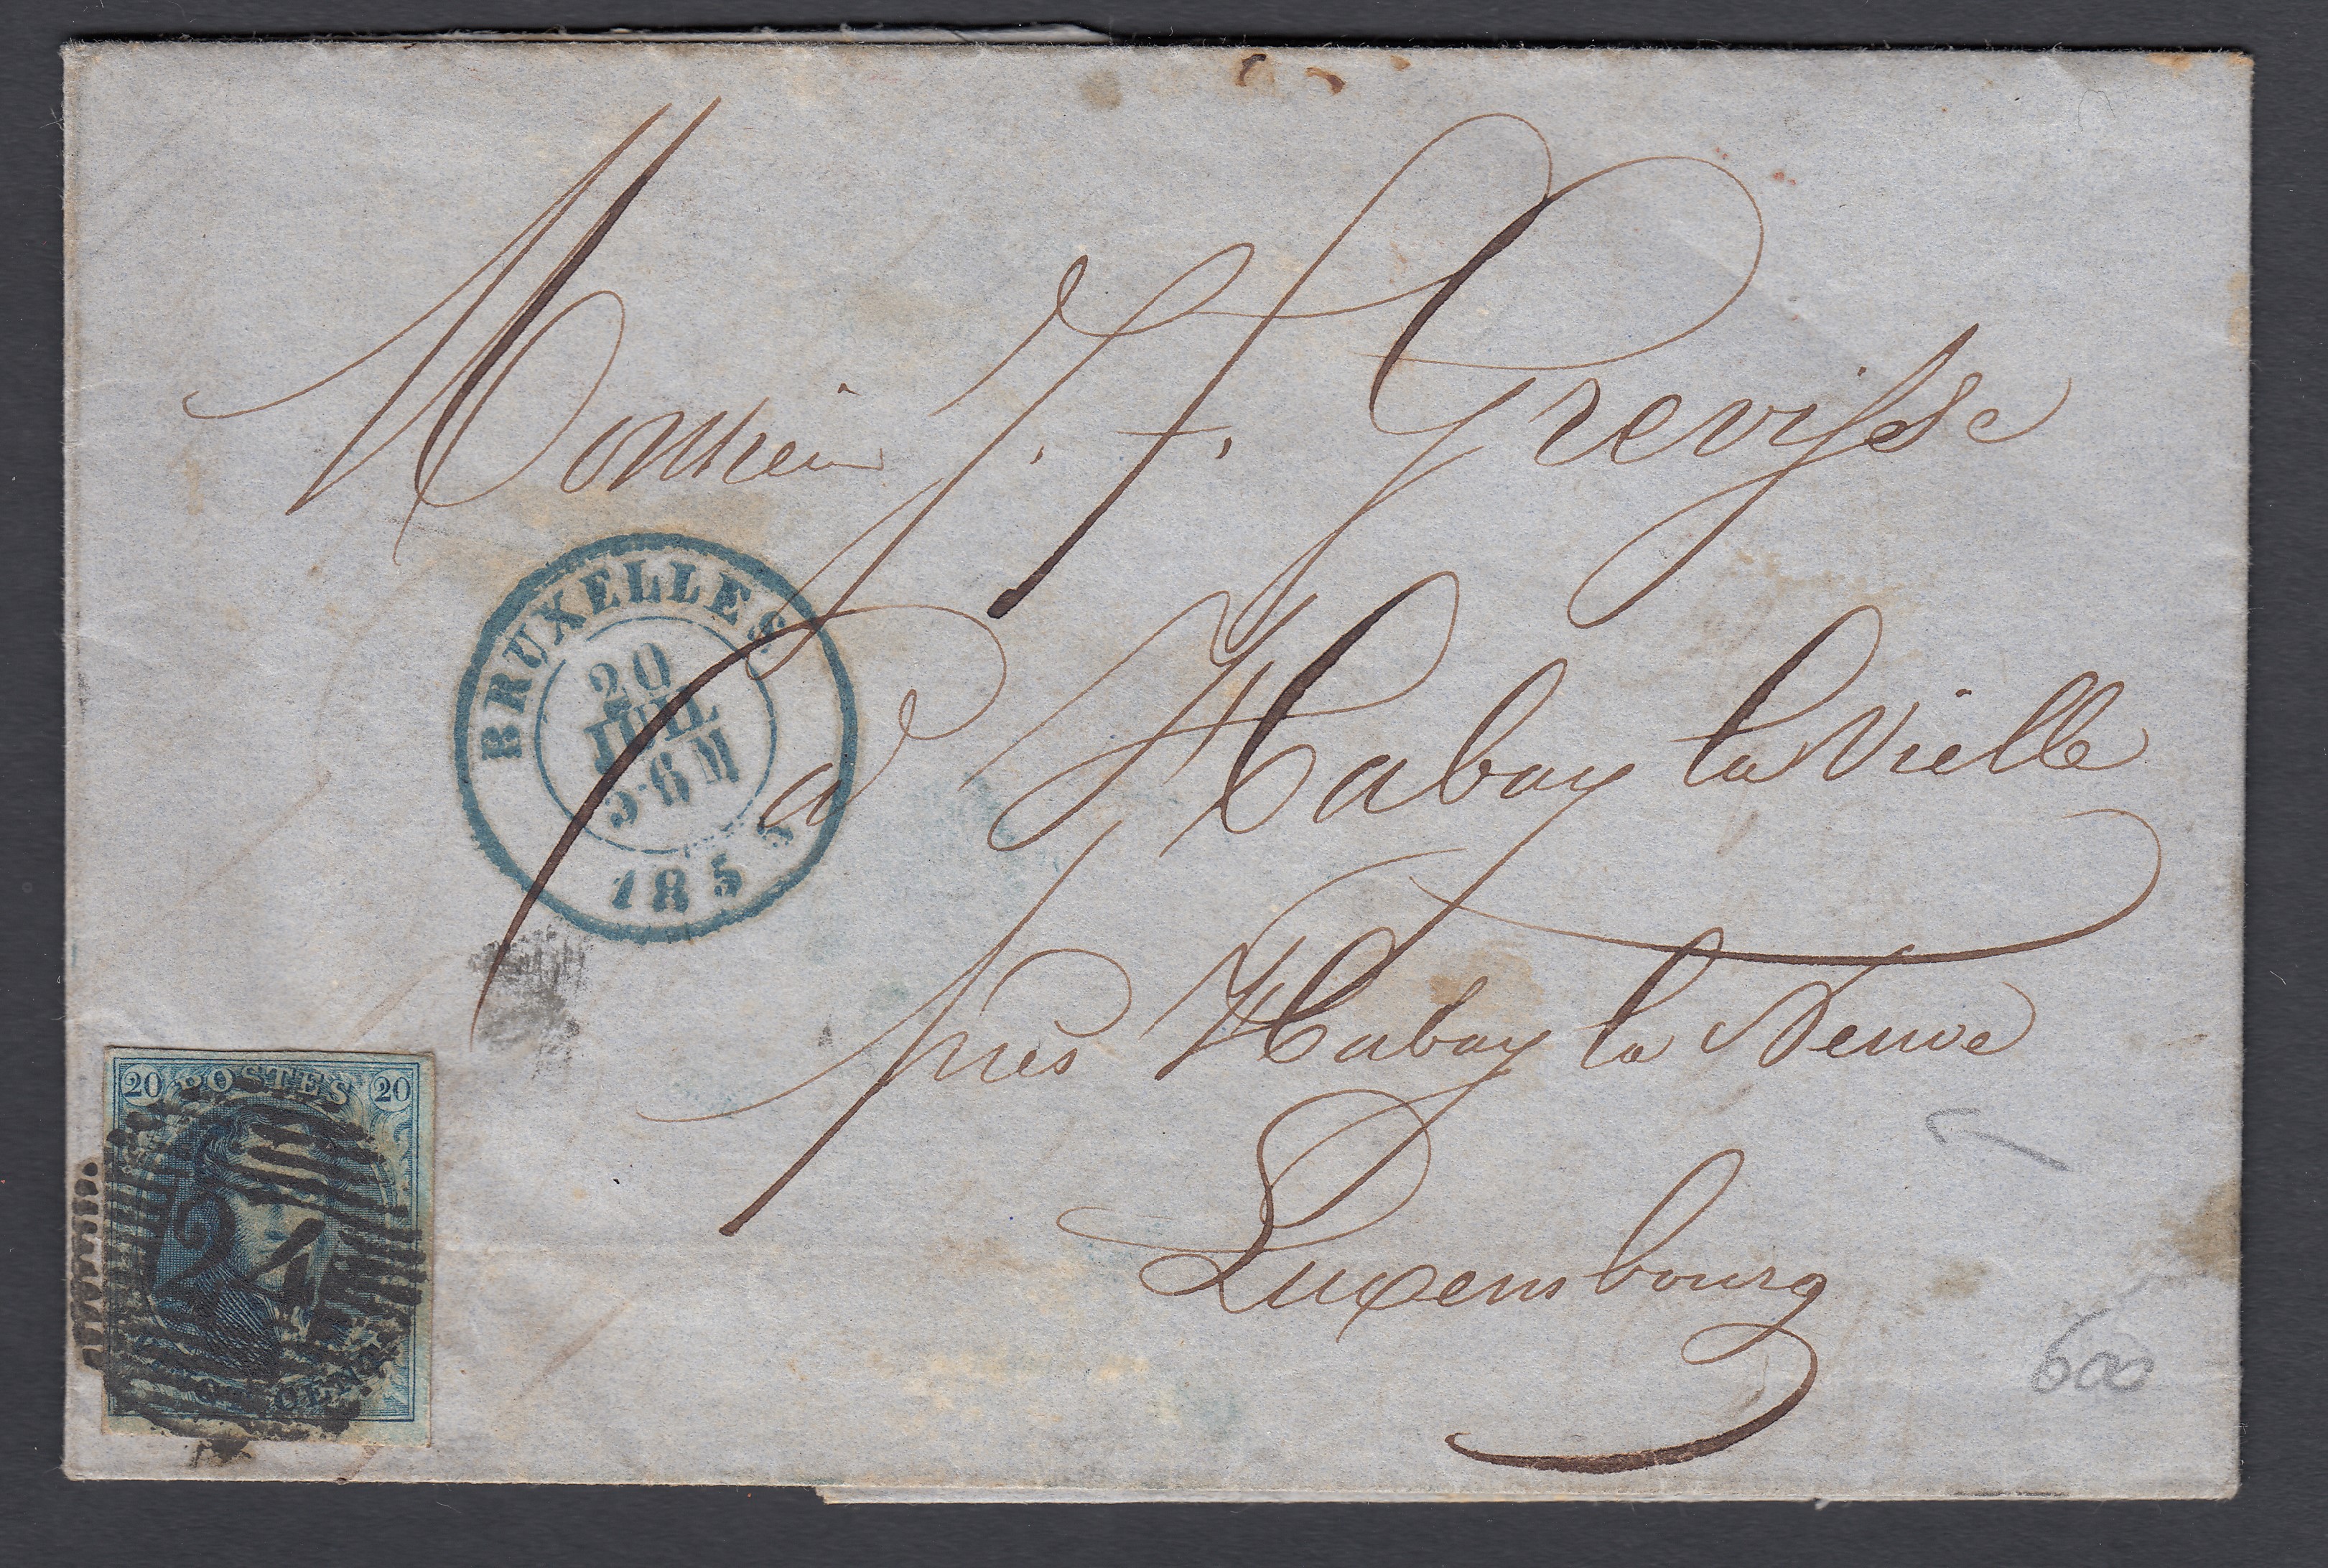 Monsieur J. F. Grevisse
à Habay la Vielle
près Habay la Neuve
Luxembourg
BRUXELLES
20
JUIL
5-6 M
185
20 POSTES 20
24
600